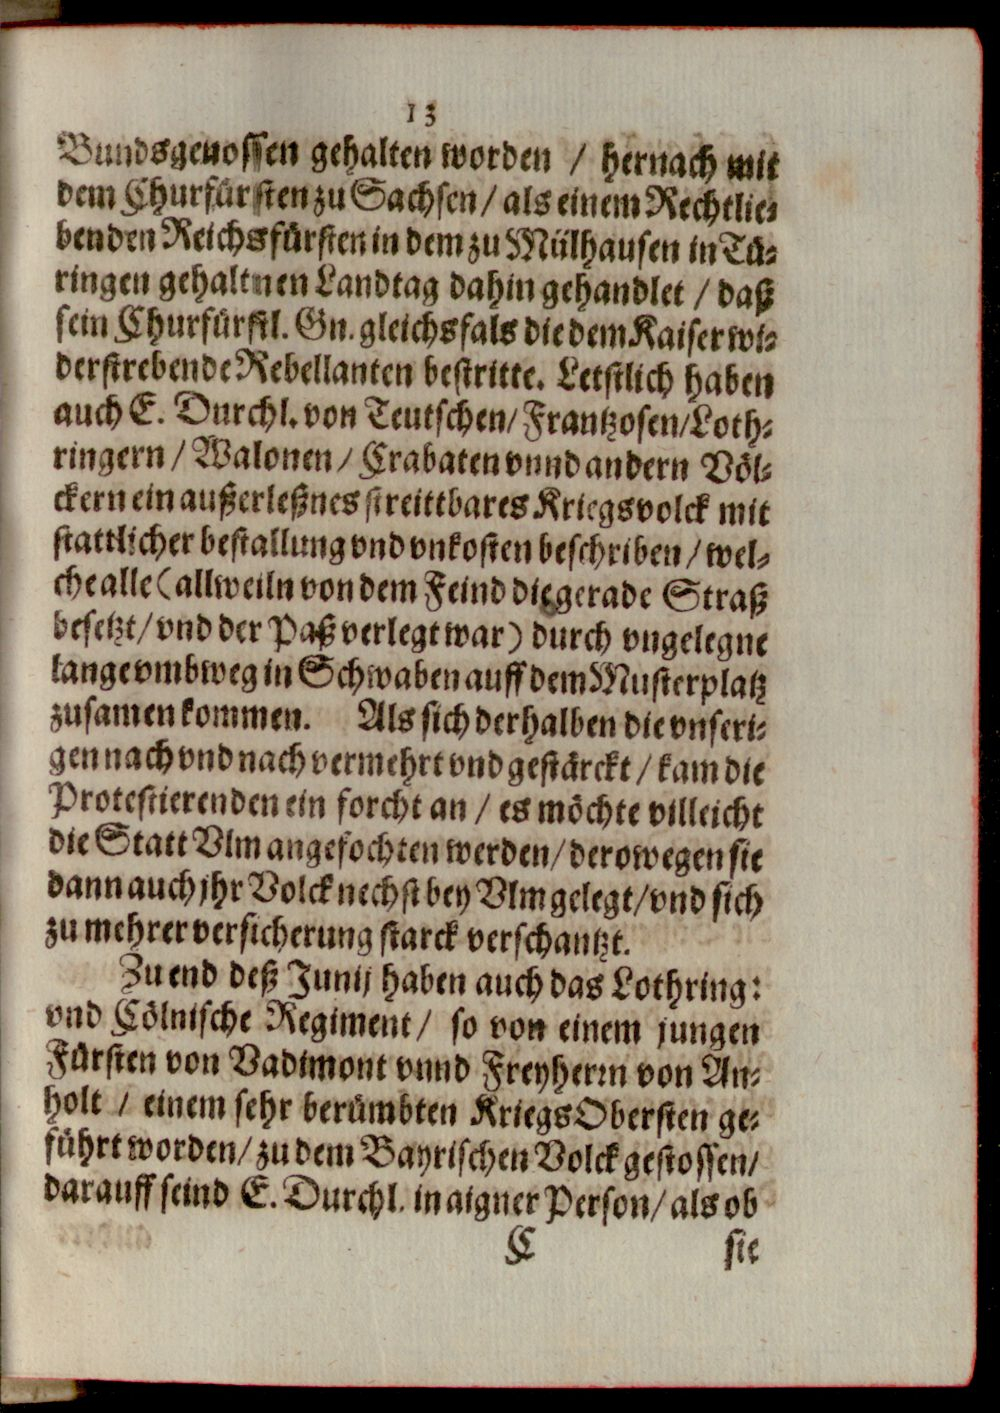 13
Bundsgenossen gehalten worden / hernach mit
dem Churfürsten zu Sachsen / als einem Rechtlie-
benden Reichsfürsten in dem zu Mülhausen in Tü-
ringen gehaltnen Landtag dahin gehandlet / daß
sein Churfürstl. Gn. gleichsfals die dem Kaiser wi-
derstrebende Rebellanten bestritte. Letstlich haben
auch E. Durchl. von Teutschen / Frantzosen / Loth-
ringern / Walonen / Crabaten vnnd andern Völ-
ckern ein außerleßnes streittbares Kriegsvolck mit
stattlicher bestallung vnd vnkosten beschriben / wel-
che alle (allweiln von dem Feind die gerade Straß
besetzt / vnd der Paß verlegt war) durch vngelegne
lange vmbweg in Schwaben auff dem Musterplatz
zusamen kommen. Als sich derhalben die vnseri-
gen nach vnd nach vermehrt vnd gestärckt / kam die
Protestierenden ein forcht an / es möchte villeicht
die Statt Vlm angefochten werden / derowegen sie
dann auch jhr Volck nechst bey Vlm gelegt / vnd sich
zu mehrer versicherung starck verschantzt.
Zu end deß Junij haben auch das Lothring:
vnd Cölnische Regiment / so von einem jungen
Fürsten von Vadimont vnnd Freyherrn von An-
holt / einem sehr berümbten KriegsObersten ge-
führt worden / zu dem Bayrischen Volck gestossen /
darauff seind E. Durchl. in aigner Person / als ob
C sie